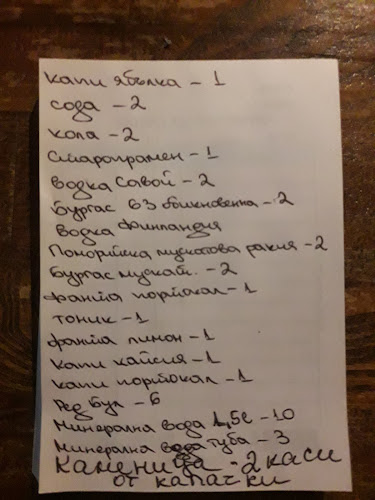 капи ябълка - 1
сода - 2
кола - 2
Старопрамен - 1
водка Савой - 2
бургас 63 обикновенна - 2
водка Финландия
Поморийска мускатова ракия - 2
бургас мускат. - 2
фанта портокал - 1
тоник - 1
фанта лимон - 1
капи кайсия - 1
капи портокал - 1
Ред бул - 6
Минерална вода 1,5л - 10
Минерална вода туба - 3
Каменица - 2 каси
от капачки